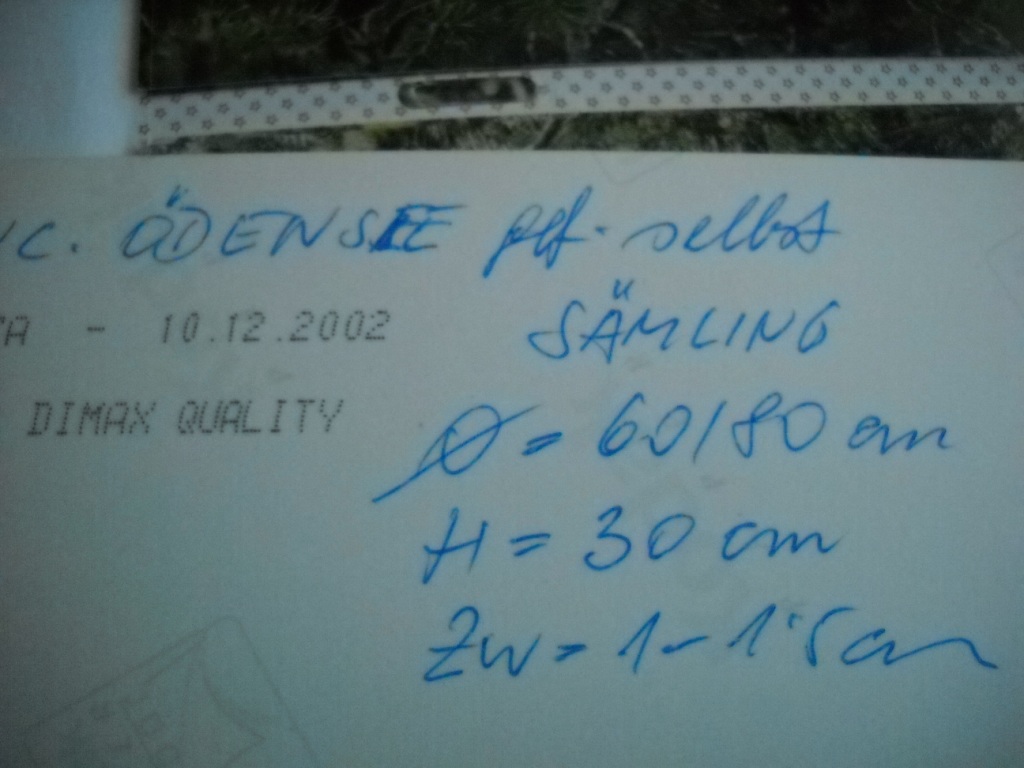 C. ÖDENSEE gef. selbst
SÄMLING
A - 10.12.2002
DIMAX QUALITY
Ø = 60/80 cm
H = 30 cm
ZW = 1 - 1'5 cm